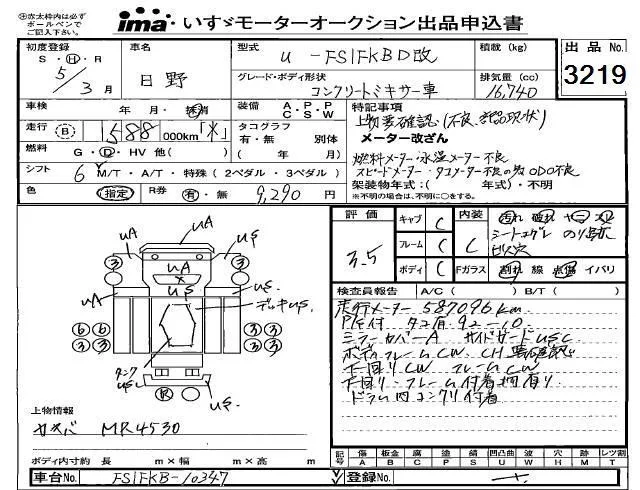 ※赤太枠内は必ず
ボールペンで
ご記入下さい。
ima いすゞモーターオークション出品申込書
初度登録
S・H・R
5/3月
車名
日野
型式
U-FS1FKBD改
積載(kg)
出品No.
3219
グレード・ボディ形状
コンクリートミキサー車
排気量(cc)
16,740
車検
年 月・抹消
装備
A・P・P
C・S・W
特記事項
上物要確認(不良、書類現状)
メーター改ざん
走行 (B) 588 000km「木」
タコグラフ
有・無 別体
( 年 月)
燃料
G・D・HV 他( )
燃料メーター・水温メーター不良
スピードメーター・タコメーター不良の為ODO不良
シフト
6 M/T・A/T・特殊(2ペダル・3ペダル)
架装物年式:( 年式)・不明
※不明の場合は、不明に○をする。
色
(指定)
R券
有・無
9,290円
評価
3.5
キャブ C
フレーム C
ボディ C
内装
C
汚れ 破れ ヤニ
シートコゲ のり跡
ビス穴
Fガラス
割れ 線 点傷 イバリ
検査員報告
A/C( ) B/T( )
走行メーター 587096km
PG付 タコ有 92-10
ミラーカバーA サイドガードUSC
ボディフレームCW CH要確認
下回りCW フレームCW
下回り・フレーム付着物有り
ドラム内コンクリ付着
UA
UA
US
UA
UA
US
US
デッキUS
タンク
US
US
③
③
⑥⑥
⑥⑥
③③
③③
R
上物情報
カヤバ MR4530
ボディ内寸約 長 m×幅 m×高 m
記号
傷 A
板金 B
腐 C
塗 P
錆 S
凹凸曲 U
波 W
穴 H
跡 M
レツ割 T
車台No.
FS1FKB-10347
登録No.